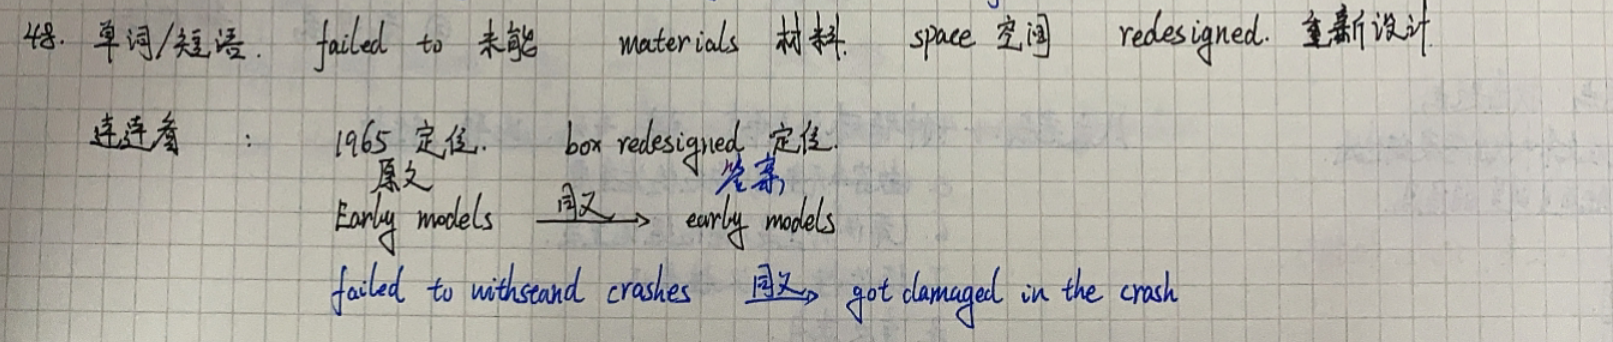 48. 单词/短语. failed to 未能 materials 材料. space 空间 redesigned. 重新设计
连连看 : 1965 定位. box redesigned 定位.
原文 答案
Early models 同义 early models
failed to withstand crashes 同义 got damaged in the crash